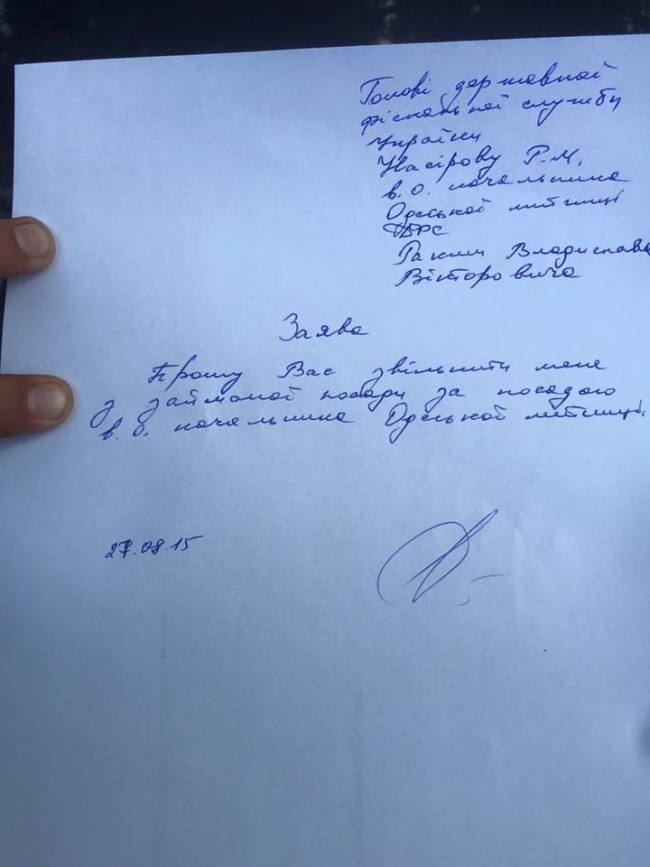 Голові державної
фіскальної служби
України
Насірову Р.М.
в.о. начальника
Одеської митниці
ДФС
Ракши Владислава
Вікторовича
Заява
Прошу Вас звільнити мене
з займаної посади за посадою
в.о. начальника Одеської митниці.
27.08.15